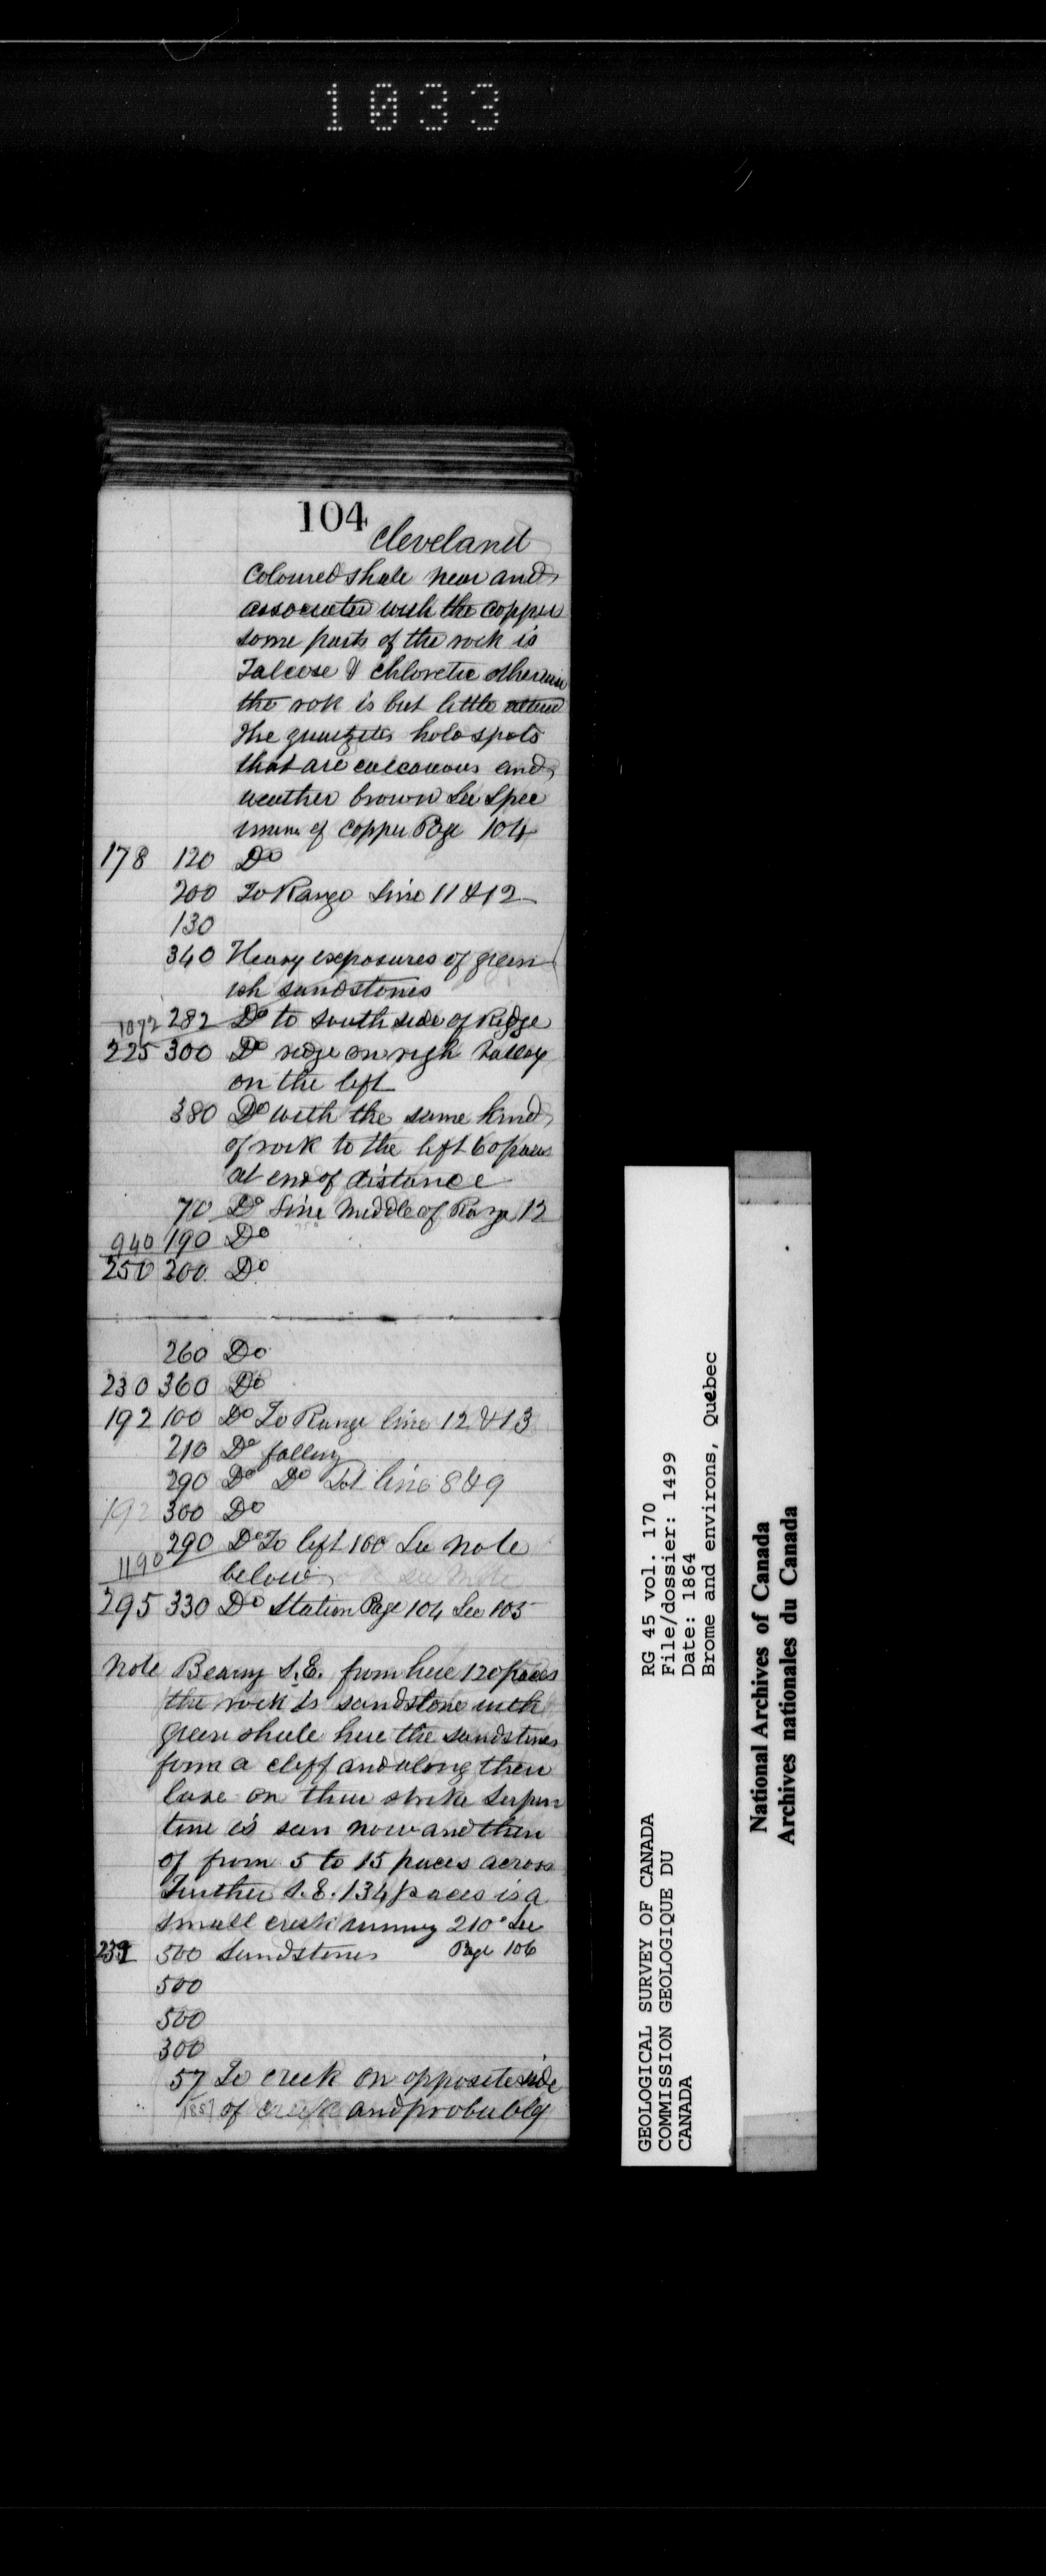 1033
104
Cleveland
Coloured shale near and
associated with the copper
some parts of the rock is
Talcose & chloretic otherwise
the rok is but little altered
The quartzites holo spots
that are calcareous and
weather brown See Spec
imens of copper Page 104
178 120 Do
200 To Range Line 11 & 12
130
340 Heavy exposures of green
ish sandstones
1072 282 Do to south side of Ridge
225 300 Do ridge on righ Valley
on the left
380 Do with the same kind
of rock to the left 60 paces
at end of distance
70 Do Line Middle of Range 12
940 190 Do
250 200 Do
260 Do
230 360 Do
192 100 Do To Range line 12 & 13
210 Do falling
290 Do Do Lot line 8 & 9
192 300 Do
1190 290 Do To left 100 See note
below
295 330 Do Station Page 104 See 105
Note Bearing S.E. from here 120 paces
the rock is sandstone with
green shale here the sandstones
form a cliff and along their
base on their strike Serpen
tine is seen now and then
of from 5 to 15 paces across
Further S.E. 134 paces is a
small creek running 210° See
Page 106
239 500 Sandstones
500
500
300
57 To creek on opposite side
1857 of creek and probably
GEOLOGICAL SURVEY OF CANADA
COMMISSION GEOLOGIQUE DU
CANADA
RG 45 vol. 170
File/dossier: 1499
Date: 1864
Brome and environs, Quebec
National Archives of Canada
Archives nationales du Canada